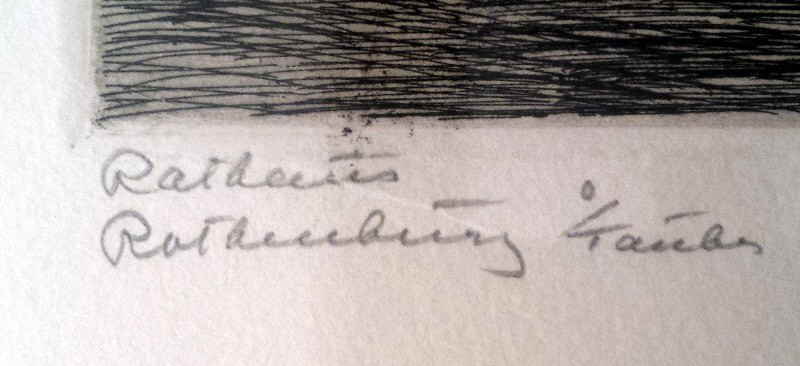 Rathaus
Rothenburg o/Tauber